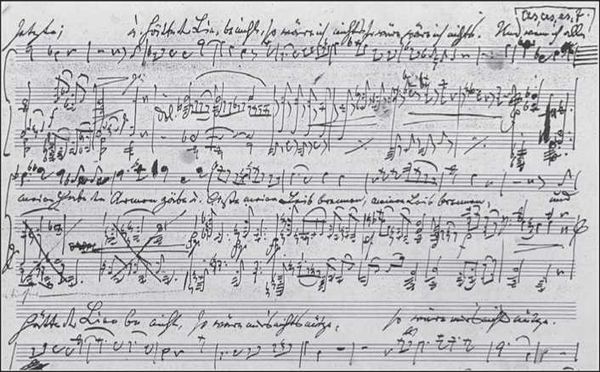 setzte; u. hätte der Liebe nicht, so wäre ich nichts, so wäre ich nichts. Und wenn ich alle
dol.
meine Habe den Armen gäbe u. ließe meinen Leib brennen, meinen Leib brennen, und
hätte der Liebe nicht, so wäre mir's nichts nütze, so wäre mir's nichts nütze.